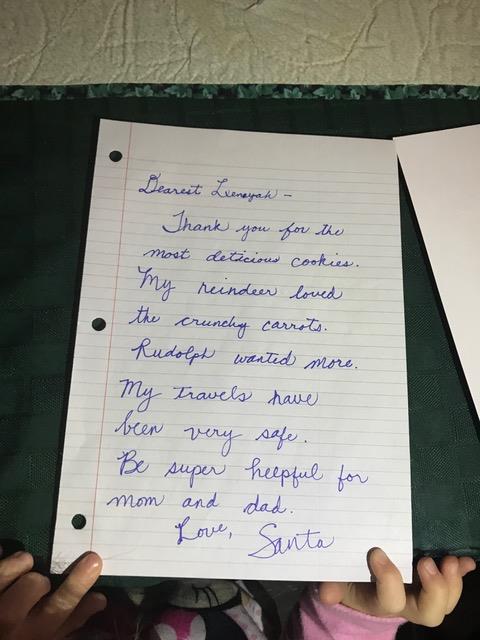 Dearest Lxenayah -
Thank you for the
most deticious cookies.
My reindeer loved
the crunchy carrots.
Rudolph wanted more.
My travels have
been very safe.
Be super helpful for
mom and dad.
Love, Santa